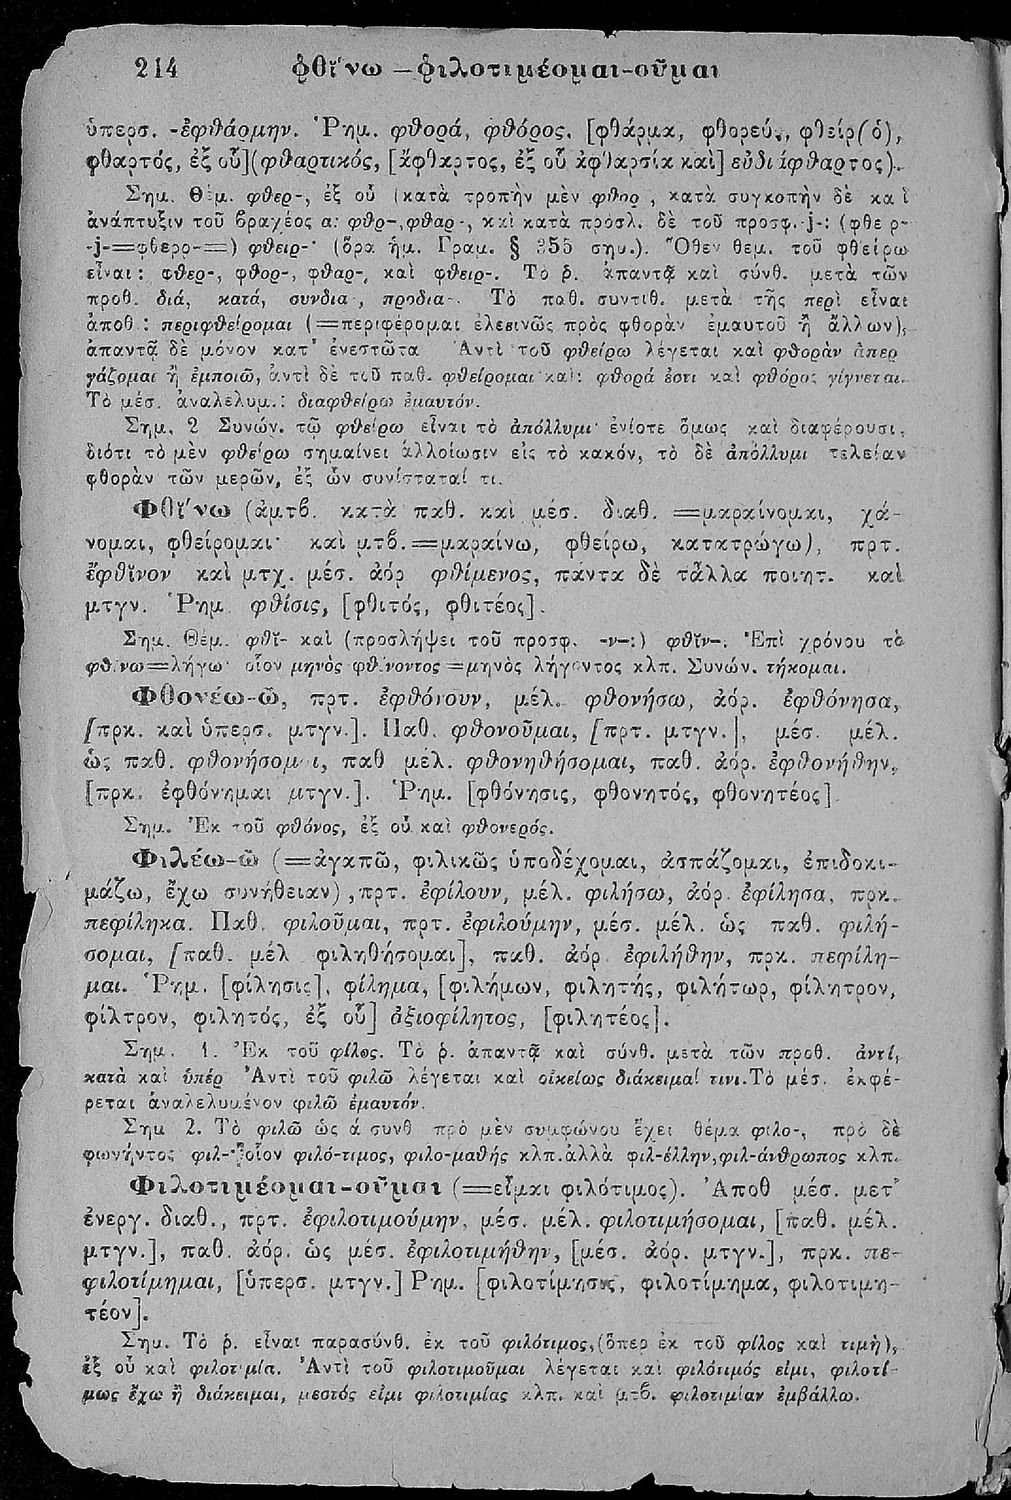 214 φθί'νω — φιλοτιμέομαι-οῦμαι
ὑπερσ. -ἐφθάρμην. Ῥημ. φθορά, φθόρος, [φθάρμα, φθορεύς, φθείρ(ὁ),
φθαρτός, ἐξ οὗ](φθαρτικός, [ἄφθαρτος, ἐξ οὗ ἀφθαρσία καὶ] εὐδιάφθαρτος).
Σημ. Θέμ. φθερ-, ἐξ οὗ (κατὰ τροπὴν μὲν φθορ , κατὰ συγκοπὴν δὲ καὶ
ἀνάπτυξιν τοῦ βραχέος α: φθρ-,φθαρ-, καὶ κατὰ πρόσλ. δὲ τοῦ προσφ.-j-: (φθερ-
-j-=φθερρ-=) φθειρ-· (ὅρα ἡμ. Γραμ. § 355 σημ.). Ὅθεν θεμ. τοῦ φθείρω
εἶναι: φθερ-, φθορ-, φθαρ-, καὶ φθειρ-. Τὸ ῥ. ἀπαντᾷ καὶ σύνθ. μετὰ τῶν
προθ. διά, κατά, συνδια-, προδια-. Τὸ παθ. συντιθ. μετὰ τῆς περὶ εἶναι
ἀποθ.: περιφθείρομαι (=περιφέρομαι ἐλεεινῶς πρὸς φθορὰν ἐμαυτοῦ ἢ ἄλλων),
ἀπαντᾷ δὲ μόνον κατ' ἐνεστῶτα Ἀντὶ τοῦ φθείρω λέγεται καὶ φθορὰν ἀπερ
γάζομαι ἢ ἐμποιῶ, ἀντὶ δὲ τοῦ παθ. φθείρομαι καὶ: φθορά ἐστι καὶ φθόρος γίγνεται.
Τὸ μέσ. ἀναλελυμ.: διαφθείρω ἐμαυτόν.
Σημ. 2 Συνών. τῷ φθείρω εἶναι τὸ ἀπόλλυμι· ἐνίοτε ὅμως καὶ διαφέρουσι,
διότι τὸ μὲν φθείρω σημαίνει ἀλλοίωσιν εἰς τὸ κακόν, τὸ δὲ ἀπόλλυμι τελείαν
φθορὰν τῶν μερῶν, ἐξ ὧν συνίσταταί τι.
Φθί'νω (ἀμτβ. κατὰ παθ. καὶ μέσ. διαθ. =μαραίνομαι, χά-
νομαι, φθείρομαι· καὶ μτβ.=μαραίνω, φθείρω, κατατρώγω), πρτ.
ἔφθῑνον καὶ μτχ. μέσ. ἀόρ φθίμενος, πάντα δὲ τἆλλα ποιητ. καὶ
μτγν. Ῥημ φθίσις, [φθιτός, φθιτέος].
Σημ. Θέμ. φθῐ- καὶ (προσλήψει τοῦ προσφ. -ν-:) φθῐν-. Ἐπὶ χρόνου τὸ
φθίνω=λήγω· οἷον μηνὸς φθίνοντος=μηνὸς λήγοντος κλπ. Συνών. τήκομαι.
Φθονέω-ῶ, πρτ. ἐφθόνουν, μέλ. φθονήσω, ἀόρ. ἐφθόνησα,
[πρκ. καὶ ὑπερσ. μτγν.]. Παθ. φθονοῦμαι, [πρτ. μτγν.], μέσ. μέλ.
ὡς παθ. φθονήσομαι, παθ μέλ. φθονηθήσομαι, παθ. ἀόρ. ἐφθονήθην,
[πρκ. ἐφθόνημαι μτγν.]. Ῥημ. [φθόνησις, φθονητός, φθονητέος]
Σημ. Ἐκ τοῦ φθόνος, ἐξ οὗ καὶ φθονερός.
Φιλέω-ῶ (=ἀγαπῶ, φιλικῶς ὑποδέχομαι, ἀσπάζομαι, ἐπιδοκι-
μάζω, ἔχω συνήθειαν),πρτ. ἐφίλουν, μέλ. φιλήσω, ἀόρ. ἐφίλησα, πρκ.
πεφίληκα. Παθ. φιλοῦμαι, πρτ. ἐφιλούμην, μέσ. μέλ. ὡς παθ. φιλή-
σομαι, [παθ. μέλ φιληθήσομαι], παθ. ἀόρ ἐφιλήθην, πρκ. πεφίλη-
μαι. Ῥημ. [φίλησις], φίλημα, [φιλήμων, φιλητής, φιλήτωρ, φίλητρον,
φίλτρον, φιλητός, ἐξ οὗ] ἀξιοφίλητος, [φιλητέος].
Σημ. 1. Ἐκ τοῦ φίλος. Τὸ ῥ. ἀπαντᾷ καὶ σύνθ. μετὰ τῶν προθ. ἀντί,
κατὰ καὶ ὑπέρ Ἀντὶ τοῦ φιλῶ λέγεται καὶ οἰκείως διάκειμαί τινι.Τὸ μέσ. ἐκφέ-
ρεται ἀναλελυμένον φιλῶ ἐμαυτόν.
Σημ 2. Τὸ φιλῶ ὡς ά συνθ πρὸ μὲν συμφώνου ἔχει θέμα φιλο-, πρὸ δὲ
φωνήεντος φιλ-· οἷον φιλό-τιμος, φιλο-μαθής κλπ.ἀλλὰ φιλ-έλλην,φιλ-άνθρωπος κλπ.
Φιλοτιμέομαι-οῦμαι (=εἶμαι φιλότιμος). Ἀποθ μέσ. μετ'
ἐνεργ. διαθ., πρτ. ἐφιλοτιμούμην, μέσ. μέλ. φιλοτιμήσομαι, [παθ. μέλ.
μτγν.], παθ. ἀόρ. ὡς μέσ. ἐφιλοτιμήθην, [μέσ. ἀόρ. μτγν.], πρκ. πε-
φιλοτίμημαι, [ὑπερσ. μτγν.] Ῥημ. [φιλοτίμησις, φιλοτίμημα, φιλοτιμη-
τέον].
Σημ. Τὸ ῥ. εἶναι παρασύνθ. ἐκ τοῦ φιλότιμος,(ὅπερ ἐκ τοῦ φίλος καὶ τιμὴ),
ἐξ οὗ καὶ φιλοτιμία. Ἀντὶ τοῦ φιλοτιμοῦμαι λέγεται καὶ φιλότιμός εἰμι, φιλοτί-
μως ἔχω ἢ διάκειμαι, μεστός εἰμι φιλοτιμίας κλπ. καὶ μτβ. φιλοτιμίαν ἐμβάλλω.